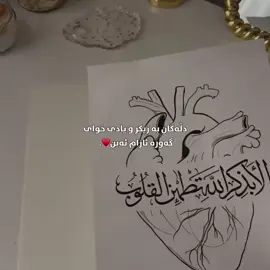 دڵەکان بە زیکر و یادی خوای
گەورە ئارام ئەبن❤️
الا بذكر الله تطمئن القلوب